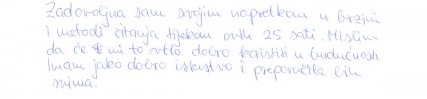 Zadovoljna sam svojim napretkom u brzini
i metodi čitanja tijekom ovih 25 sati. Mislim
da će mi to vrlo dobro koristiti u budućnosti.
Imam jako dobro iskustvo i preporučila bih
svima.